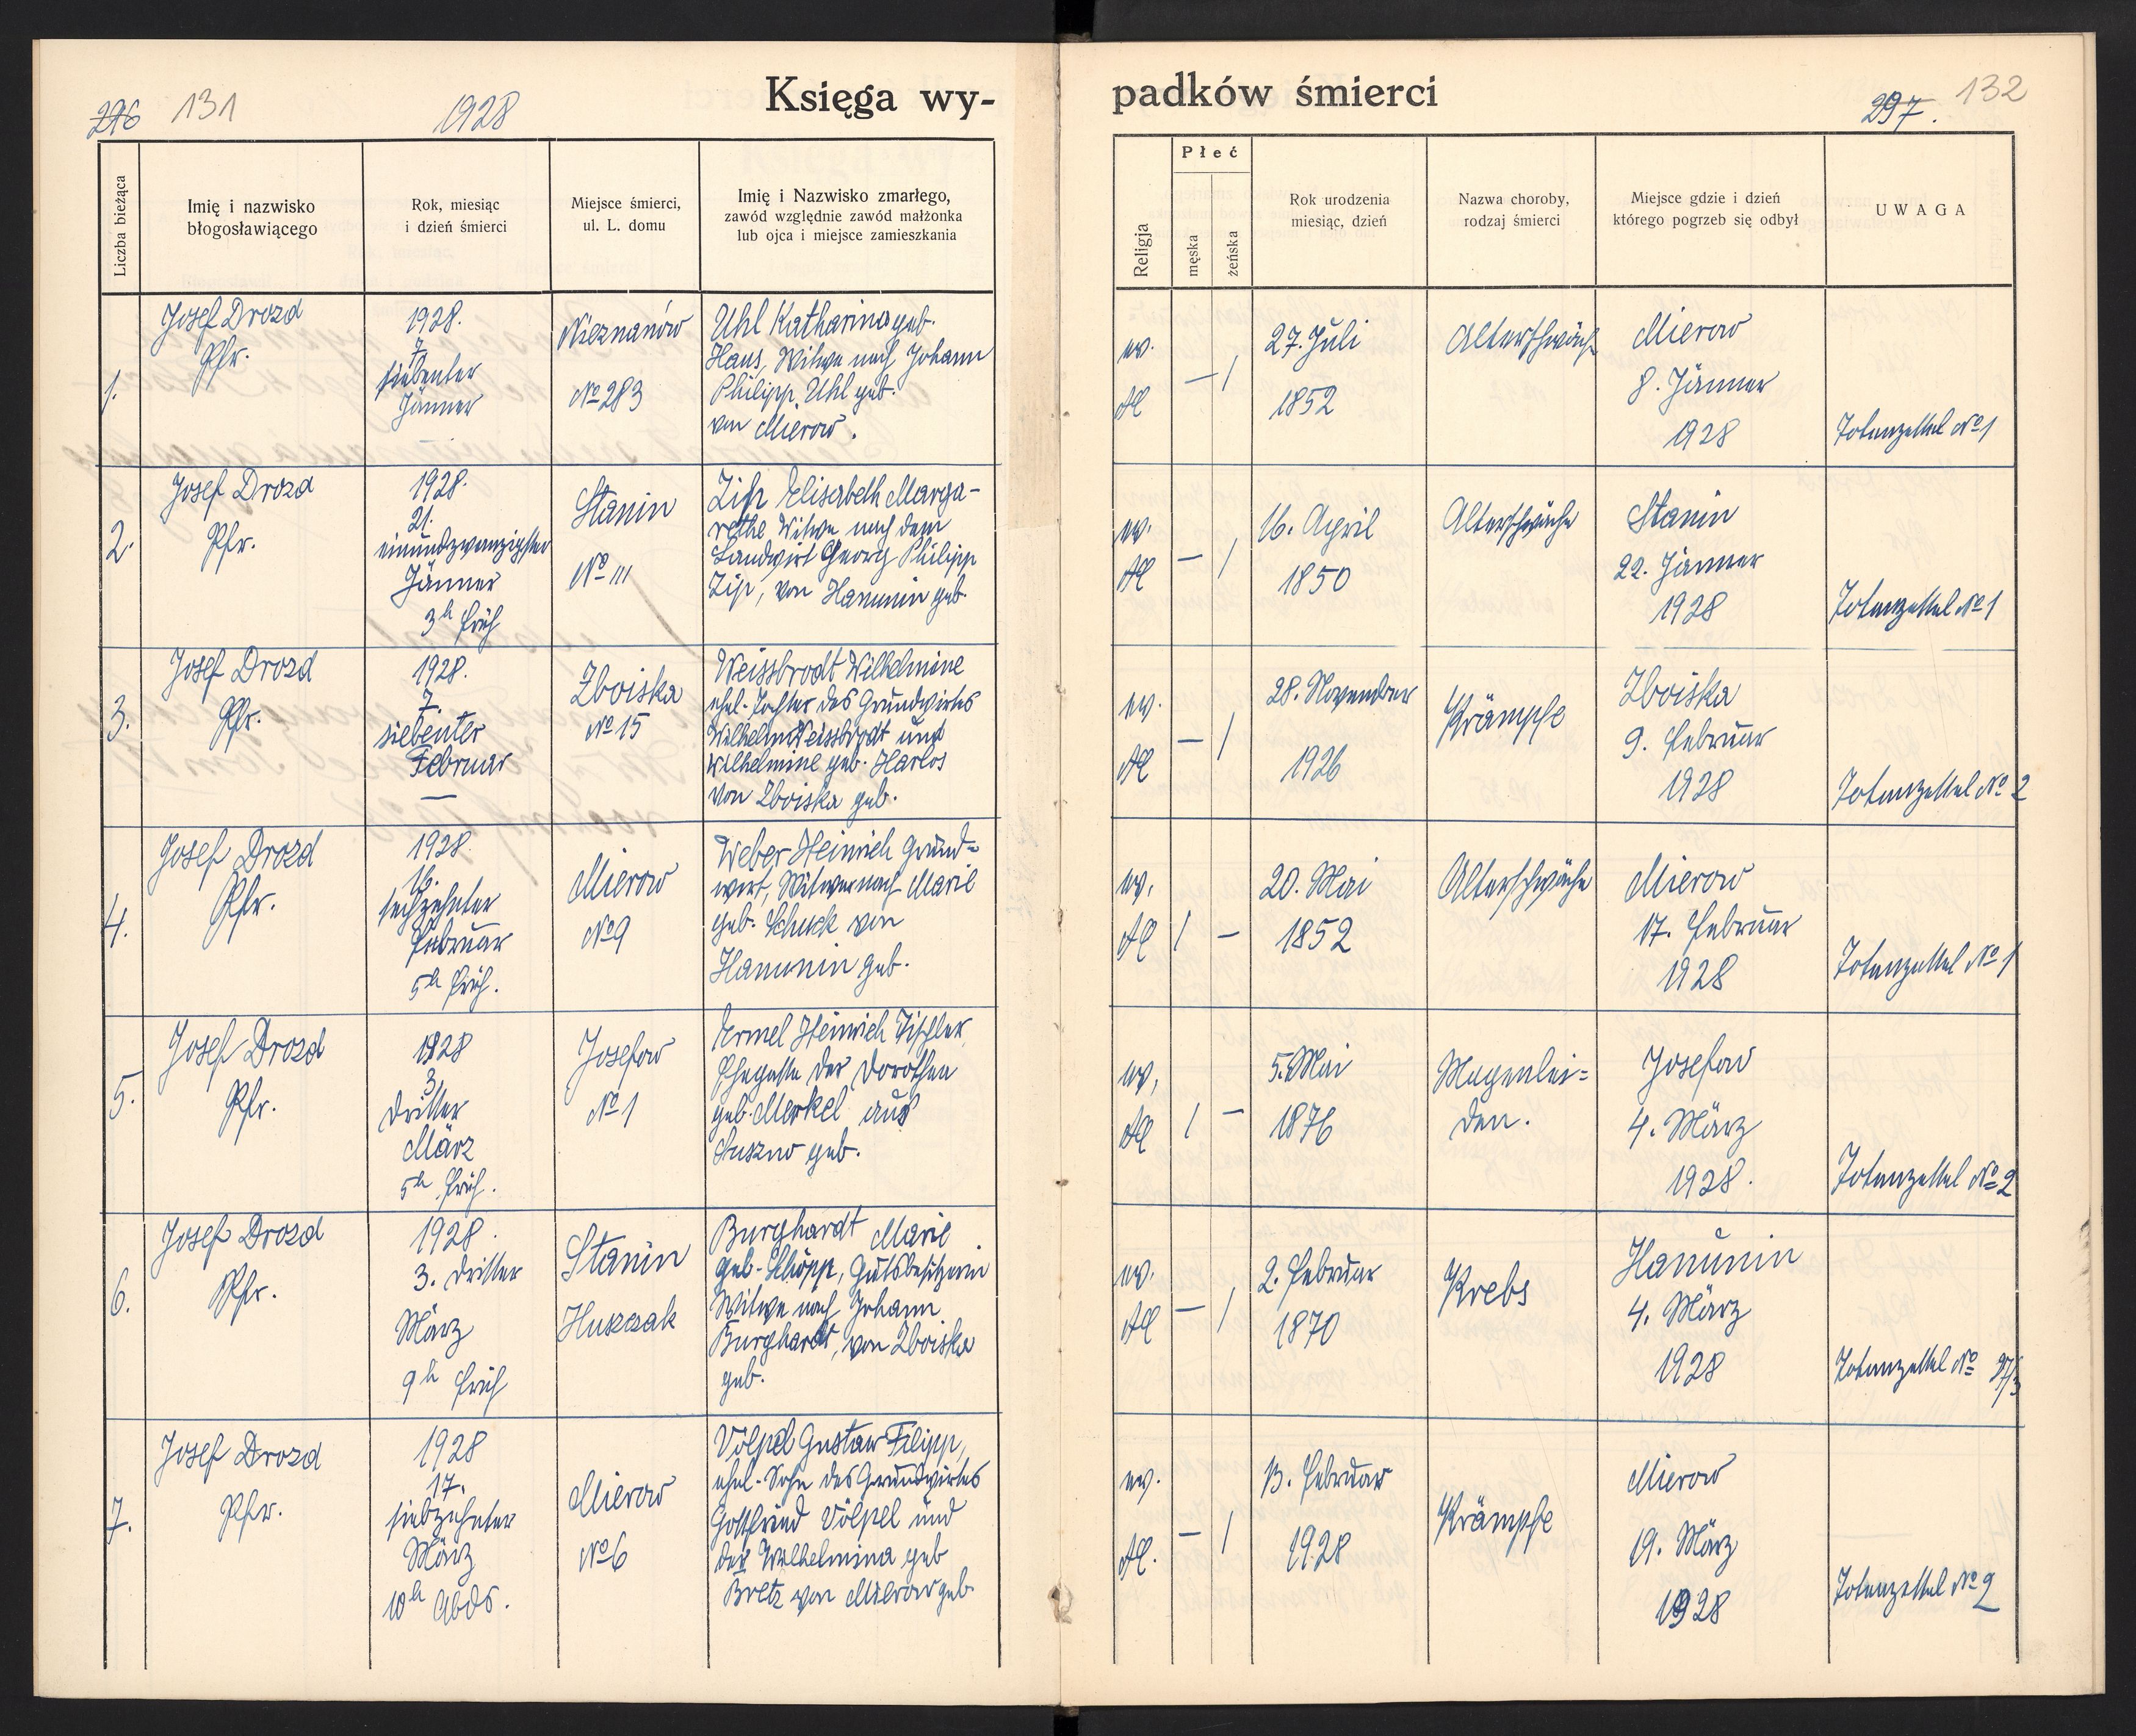 296 131 1928 Księga wy-
padków śmierci 297. 132
Liczba bieżąca
Imię i nazwisko
błogosławiącego
Rok, miesiąc
i dzień śmierci
Miejsce śmierci,
ul. L. domu
Imię i Nazwisko zmarłego,
zawód względnie zawód małżonka
lub ojca i miejsce zamieszkania
Religja
Płeć
męska
żeńska
Rok urodzenia
miesiąc, dzień
Nazwa choroby,
rodzaj śmierci
Miejsce gdzie i dzień
którego pogrzeb się odbył
UWAGA
1.
Josef Drozd
Pfr.
1928.
7.
siebenter
Jänner
—
Nieznanów
No 283
Uhl Katharina geb.
Haus, Witwe nach Johann
Philipp Uhl geb.
von Mierow.
ev.
AC
— /
27. Juli
1852
Altersschwäche
Mierow
8. Jänner
1928
Totenzettel No 1
2.
Josef Drozd
Pfr.
1928.
21.
einundzwanzigster
Jänner
3h früh
Stanin
No 111
Zip Elisabeth Marga-
rethe Witwe nach dem
Landwirt Georg Philipp
Zip, von Hanunin geb.
ev.
AC
— /
16. April
1850
Altersschwäche
Stanin
22. Jänner
1928
Totenzettel No 1
3.
Josef Drozd
Pfr.
1928.
7.
siebenter
Februar
—
Zboiska
No 15
Weissbrodt Wilhelmine
ehel. Tochter des Grundwirtes
Wilhelm Weissbrodt und
Wilhelmine geb. Harlos
von Zboiska geb.
ev.
AC
— /
28. November
1926
Krämpfe
Zboiska
9. Februar
1928
Totenzettel No 2
4.
Josef Drozd
Pfr.
1928.
16.
sechzehnter
Februar
5h früh.
Mierow
No 9
Weber Heinrich Grund-
wirt, Witwer nach Marie
geb. Schuck von
Hanunin geb.
ev.
AC
/ —
20. Mai
1852
Altersschwäche
Mierow
17. Februar
1928
Totenzettel No 1
5.
Josef Drozd
Pfr.
1928
3.
dritter
März
5h früh.
Josefow
No 1
Ermel Heinrich Tischler,
Ehegatte der Dorothea
geb. Merkel aus
Suszno geb.
ev.
AC
/ —
5. Mai
1876
Magenlei-
den.
Josefow
4. März
1928.
Totenzettel No 2
6.
Josef Drozd
Pfr.
1928.
3. dritter
März
9h früh
Stanin
Huszczak
Burghardt Marie
geb. Schöpp, Gutsbesitzerin
Witwe nach Johann
Burghardt, von Zboiska
geb.
ev.
AC
— /
2. Februar
1870
Krebs
Hanunin
4. März
1928
Totenzettel No
7.
Josef Drozd
Pfr.
1928
17.
siebzehnter
März
10h Abds.
Mierow
No 6
Völpel Gustaw Filipp,
ehel. Sohn des Grundwirtes
Gottfried Völpel und
der Wilhelmina geb
Bretz von Mierow geb.
ev.
AC.
— /
13. Februar
1928
Krämpfe
Mierow
19. März
1928
Totenzettel No 2